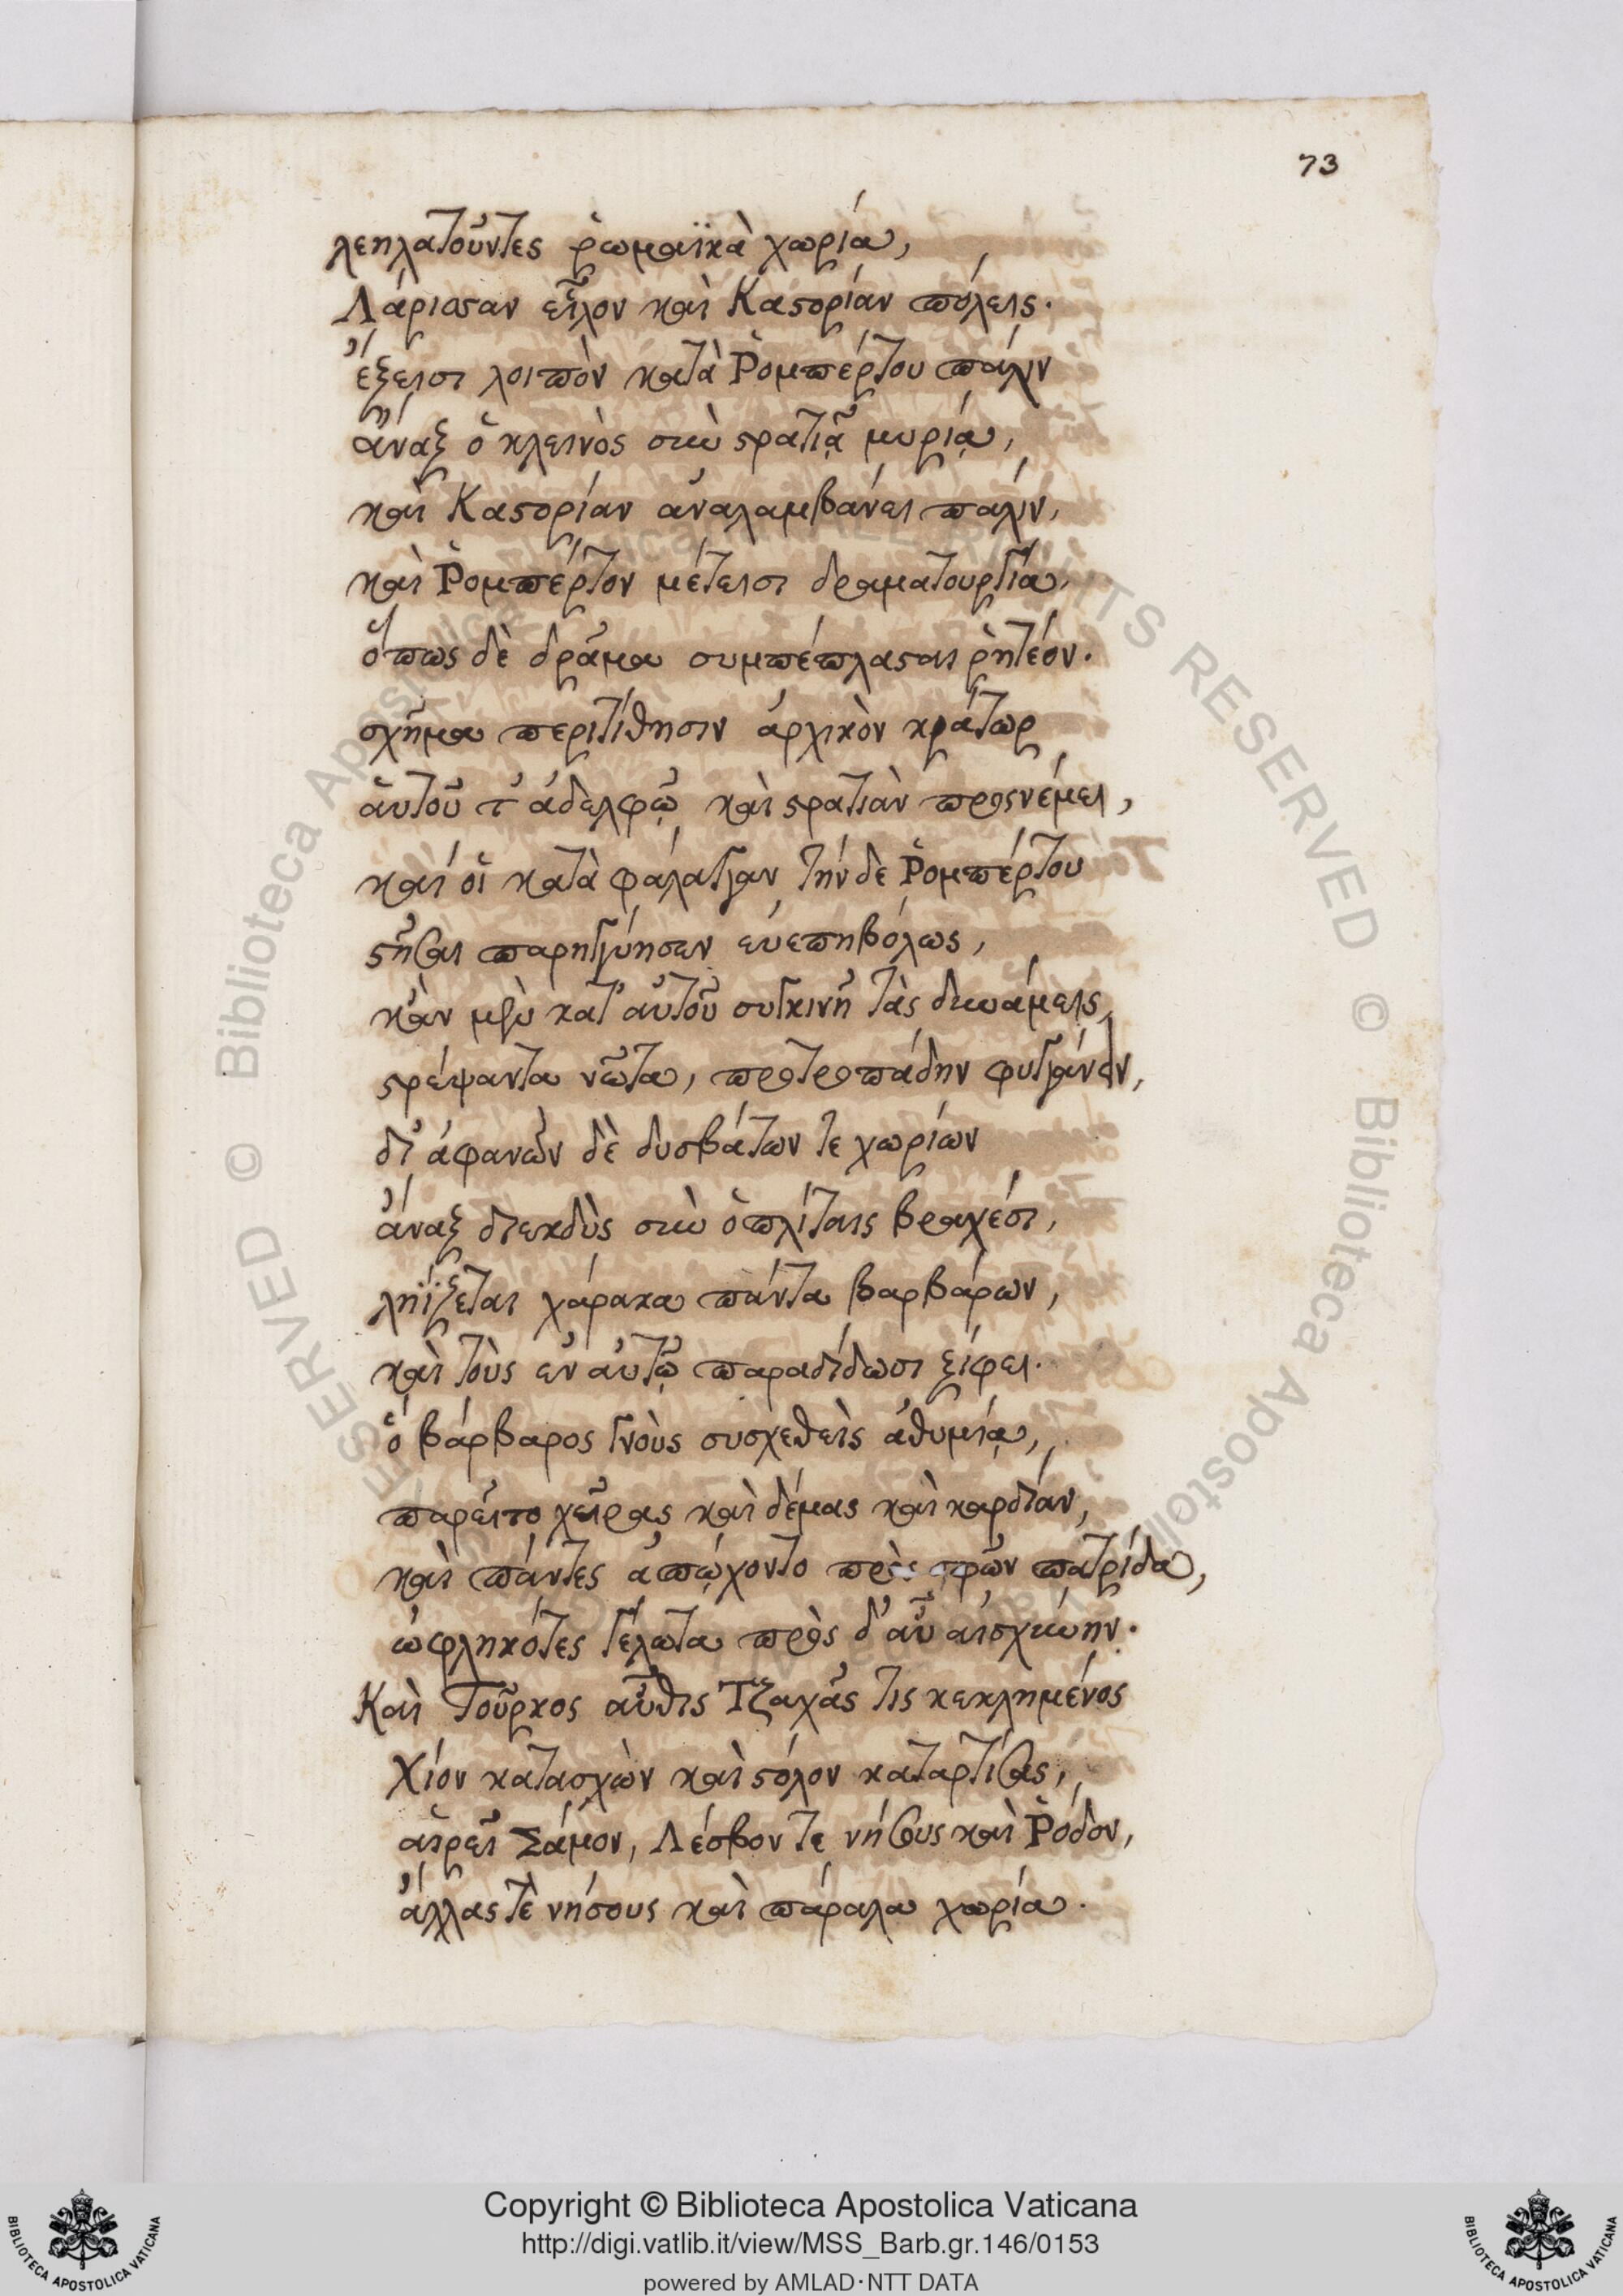 73
λεηλατοῦντες ῥωμαϊκὰ χωρία,
Λάρισσαν εἷλον καὶ Καστορίαν πόλεις.
ἔξεισι λοιπὸν κατὰ Ῥομπέρτου πάλιν
ἄναξ ὁ κλεινὸς σὺν στρατιᾷ μυρίᾳ,
καὶ Καστορίαν ἀναλαμβάνει πάλιν,
καὶ Ῥομπέρτον μέτεισι δραματουργία,
ὅπως δὲ δρᾶμα συμπέπλασται ῥητέον.
σχῆμα περιτίθησιν ἀρχικὸν κράτωρ
αὑτοῦ τ' ἀδελφῷ καὶ στρατιὰν προσνέμει,
καί οἱ κατὰ φάλαγγαν τήνδε Ῥομπέρτου
στῆσαι παρηγγύησεν εὐεπηβόλως,
κἂν μὲν κατ' αὐτοῦ συγκινῇ τὰς δυνάμεις,
στρέψαντα νῶτα, προτροπάδην φυγγάνειν,
δι' ἀφανῶν δὲ δυσβάτων τε χωρίων
ἄναξ διεκδὺς σὺν ὁπλίταις βραχέσι,
ληΐζεται χάρακα πάντα βαρβάρων,
καὶ τοὺς ἐν αὐτῷ παραδίδωσι ξίφει.
ὁ βάρβαρος γνοὺς συσχεθεὶς ἀθυμίᾳ,
παρεῖτο χεῖρας καὶ δέμας καὶ καρδίαν,
καὶ πάντες ἀπῴχοντο πρὸς σφῶν πατρίδα,
ὠφληκότες γέλωτα πρὸς δ' αὖ αἰσχύνην.
Καὶ Τοῦρκος αὖθις Τζαχᾶς τις κεκλημένος
Χίον κατασχὼν καὶ στόλον καταρτίσας,
αἱρεῖ Σάμον, Λέσβον τε νήσους καὶ Ῥόδον,
ἄλλας τὲ νήσους καὶ πάραλα χωρία.
Copyright © Biblioteca Apostolica Vaticana
http://digi.vatlib.it/view/MSS_Barb.gr.146/0153
powered by AMLAD·NTT DATA
BIBLIOTECA APOSTOLICA VATICANA
BIBLIOTECA APOSTOLICA VATICANA